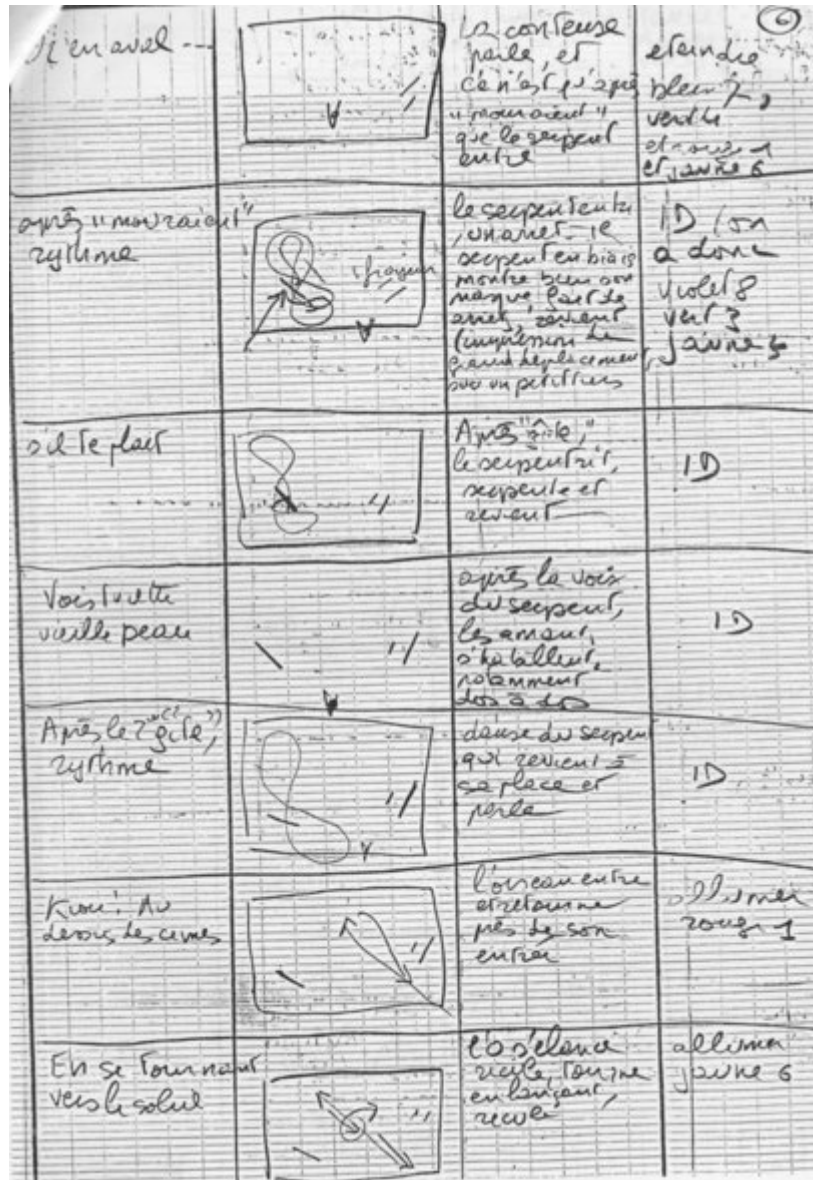 6
en aval ---
La conteuse
parle, et
ce n'est qu'après
"mouraient"
que le serpent
entre
eteindre
bleu 7,
vert 4
et rouge 1
et jaune 6
après "mouraient"
rythme
le serpent entre
un arret - le
serpent en biais
montre bien son
masque
(impression de
grand deplacement
sur un petit tiers
ID (on
a donc
violet 8
vert 3
jaune 5
s'il te plait
Après "gîte,"
le serpent rit,
serpente et
revient
ID
Vois tu cette
vieille peau
après la voix
du serpent,
les amant,
s'habillent,
notamment
dos à dos
ID
Après le 2e "gîte",
rythme
danse du serpent
qui revient à
sa place et
parle
ID
Au
dessus des cimes
l'oiseau entre
et retourne
près de son
entrée
allumer
rouge 1
En se tournant
vers le soleil
l'o s'elance
recule, tourne
en lançant,
recule
allumer
jaune 6